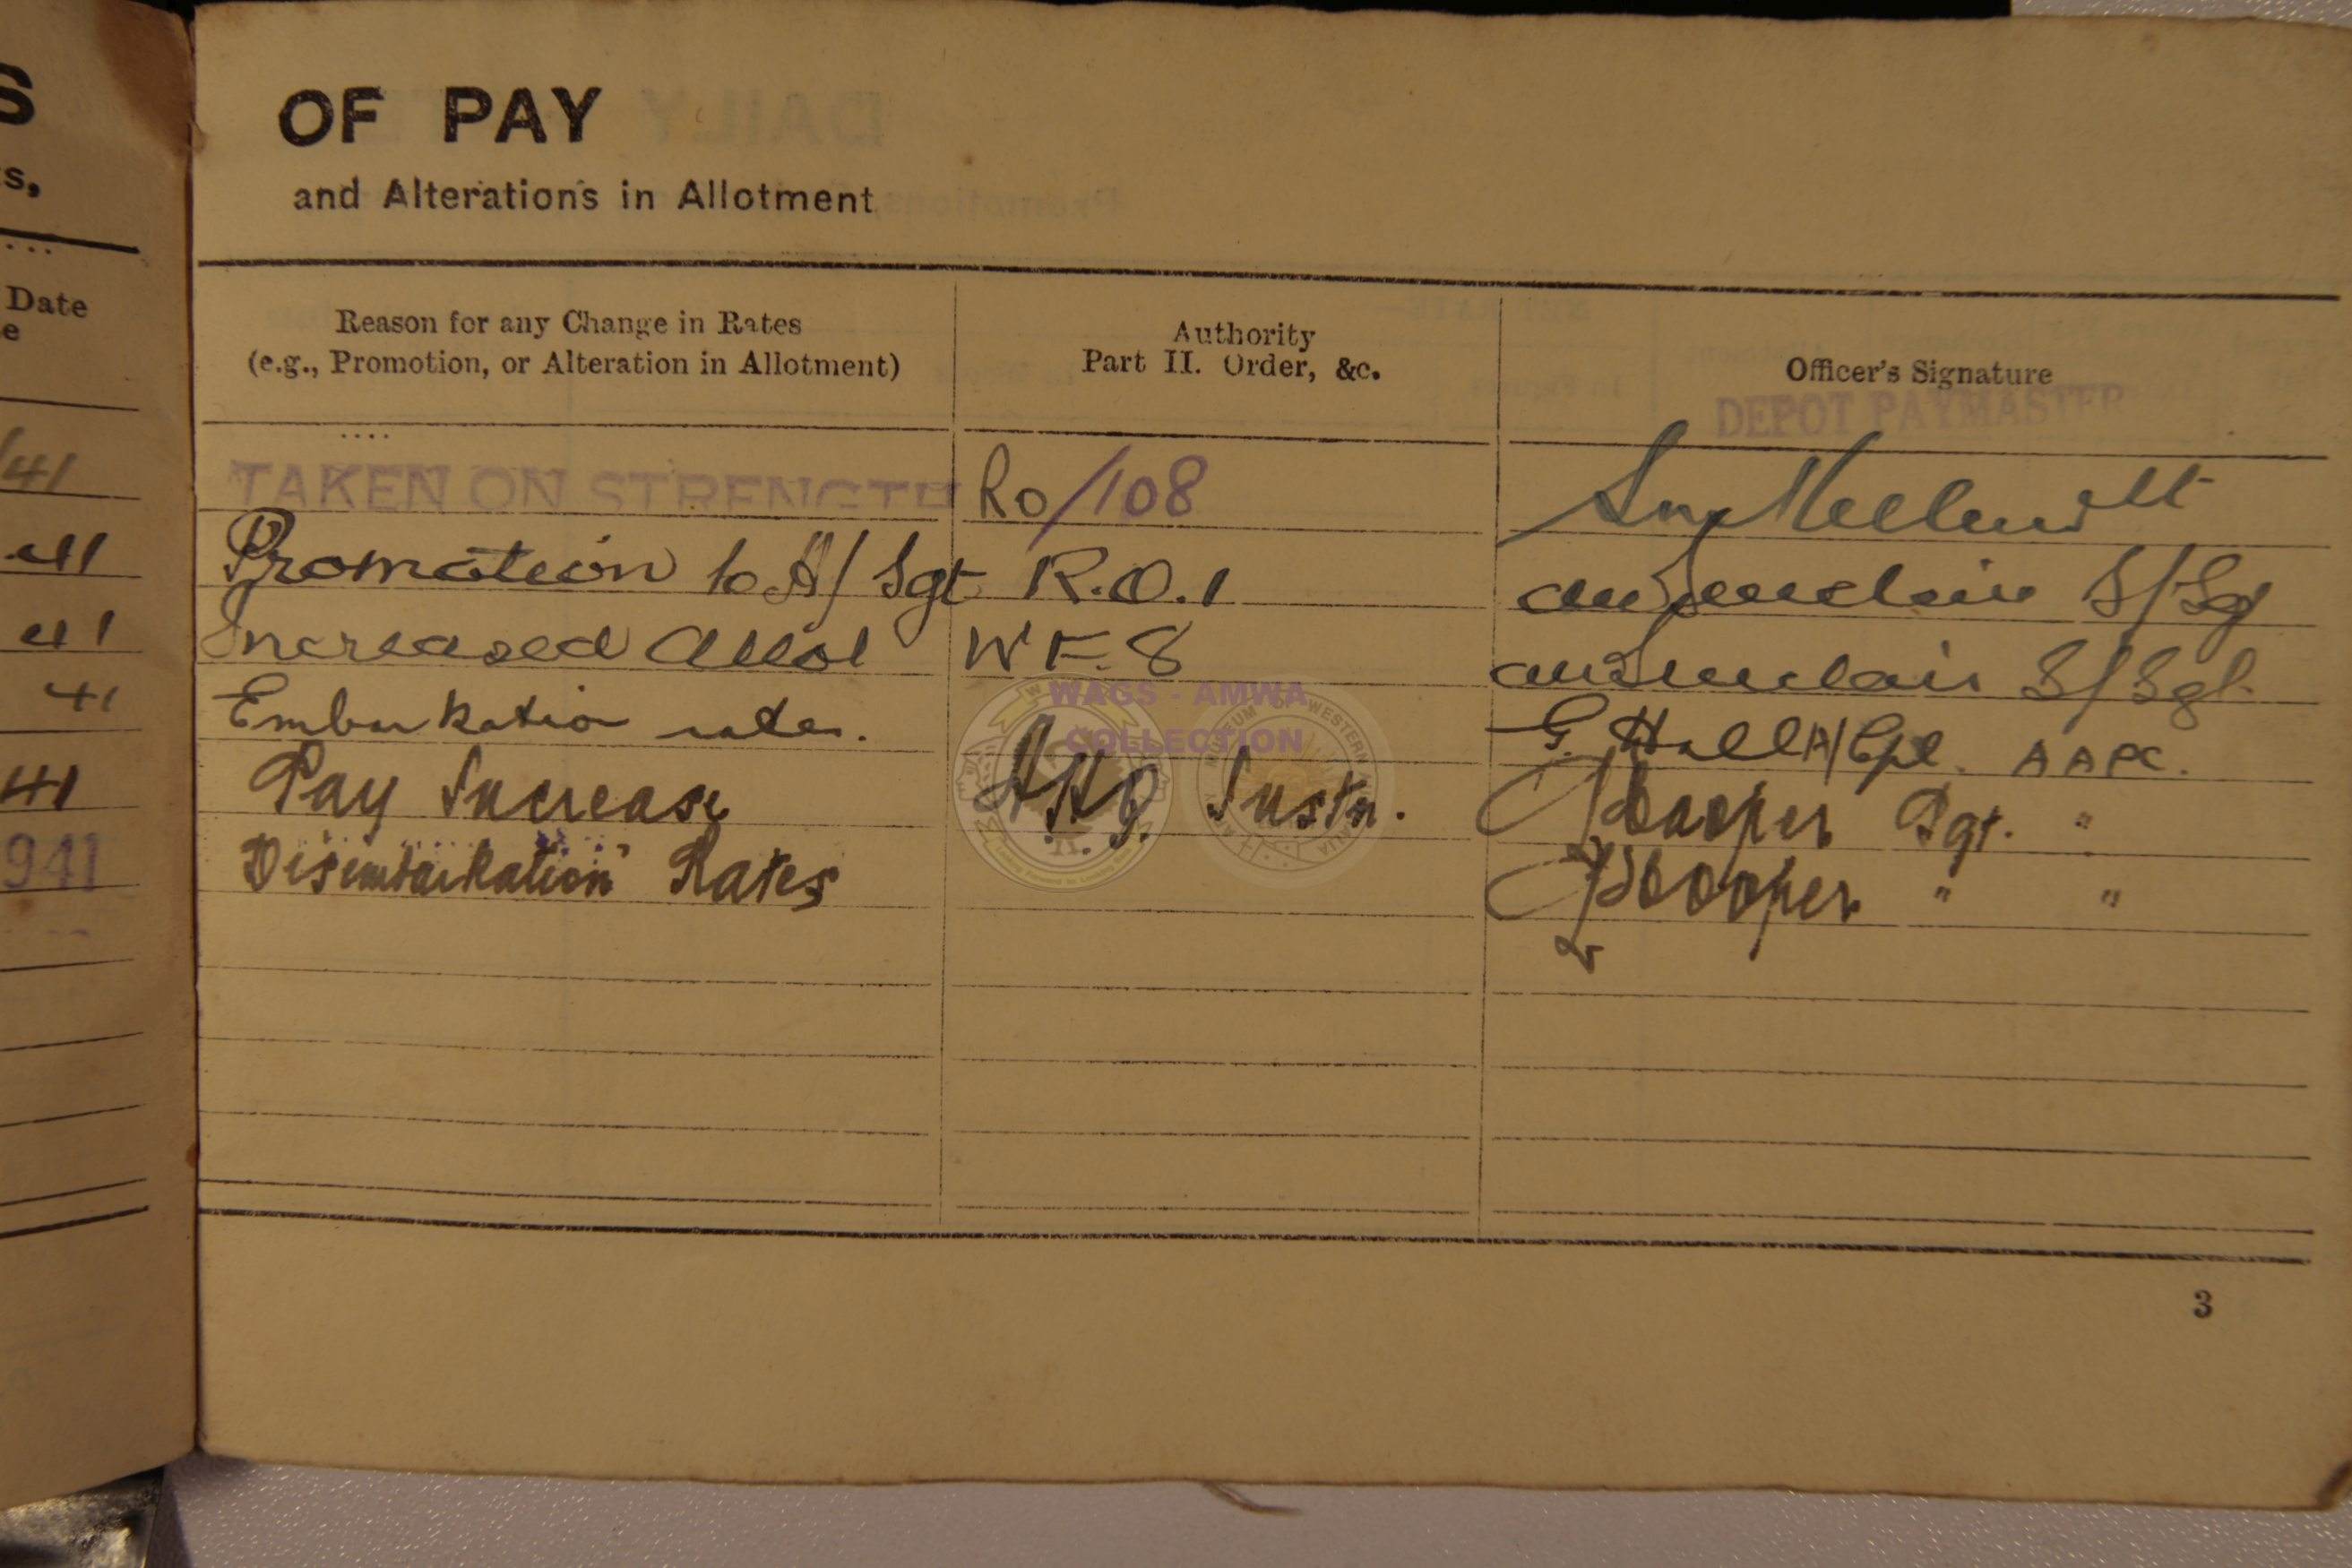 S
s,
Date
e
/41
41
41
41
41
941
OF PAY
and Alterations in Allotment
Reason for any Change in Rates
(e.g., Promotion, or Alteration in Allotment)
Authority
Part II. Order, &c.
Officer's Signature
DEPOT PAYMASTER
TAKEN ON STRENGTH Ro/108 Lt
Promotion to A/Sgt R.O.1 Sinclair S/Sgt
Increased Allot WF.8 Sinclair S/Sgt.
Embarkation rates. G. Hall A/Cpl. AAPC.
Pay Increase A.H.Q. Instn. Cooper Sgt. "
Disembarkation Rates Cooper " "
WAGS - AMWA
COLLECTION
3